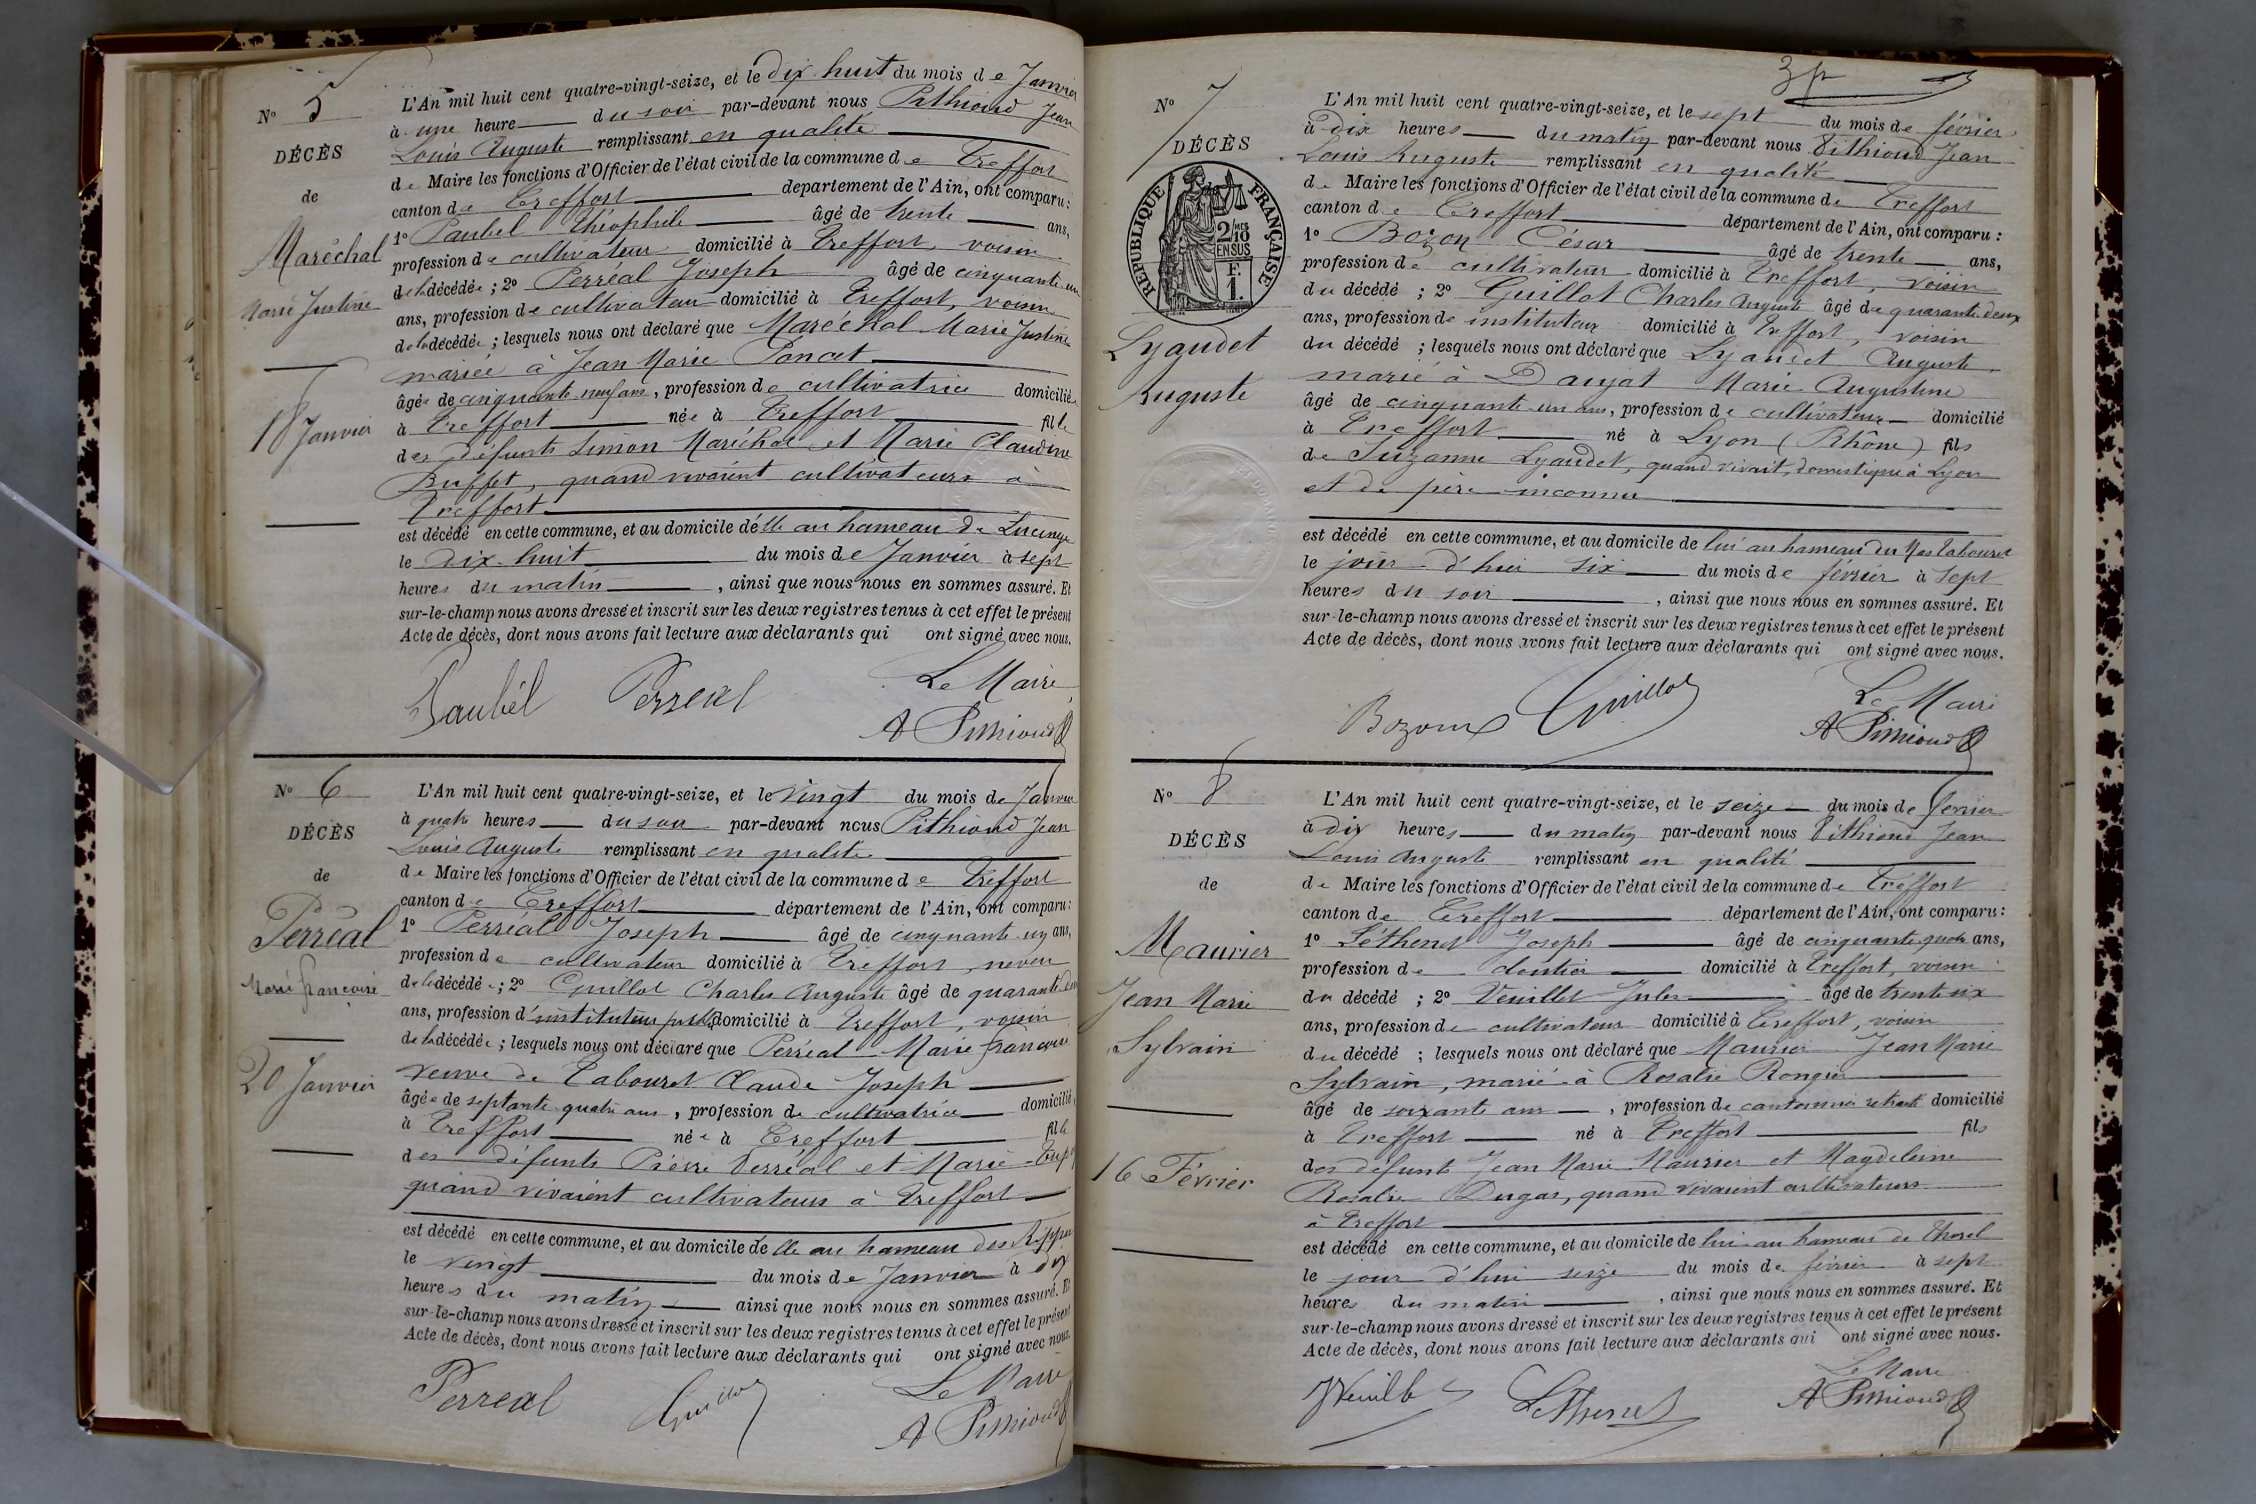 N° 5
DÉCÈS
de
Maréchal
Marie Justine
18 Janvier
L'An mil huit cent quatre-vingt-seize, et le dix huit du mois de Janvier
à une heure du soir par-devant nous Pithioud Jean
Louis Auguste remplissant en qualité
de Maire les fonctions d'Officier de l'état civil de la commune de Treffort
canton de Treffort département de l'Ain, ont comparu :
1° Paubel Théophile âgé de trente ans,
profession de cultivateur domicilié à Treffort, voisin
de la décédée ; 2° Perréal Joseph âgé de cinquante un
ans, profession de cultivateur domicilié à Treffort, voisin
de la décédée ; lesquels nous ont déclaré que Maréchal Marie Justine
mariée à Jean Marie Poncet
âgée de cinquante neuf ans, profession de cultivatrice domiciliée
à Treffort née à Treffort fille
des défunts Simon Maréchal et Marie Claudine
Buffet, quand vivaient cultivateurs à
Treffort
est décédé en cette commune, et au domicile d'elle au hameau de Lucinge
le dix-huit du mois de Janvier à sept
heures du matin , ainsi que nous nous en sommes assuré. Et
sur-le-champ nous avons dressé et inscrit sur les deux registres tenus à cet effet le présent
Acte de décès, dont nous avons fait lecture aux déclarants qui ont signé avec nous.
Paubel Perreal Le Maire
A Pithioud
N° 6
DÉCÈS
de
Perréal
Marie françoise
20 Janvier
L'An mil huit cent quatre-vingt-seize, et le vingt du mois de Janvier
à quatre heures du soir par-devant nous Pithioud Jean
Louis Auguste remplissant en qualité
de Maire les fonctions d'Officier de l'état civil de la commune de Treffort
canton de Treffort département de l'Ain, ont comparu :
1° Perréal Joseph âgé de cinquante un ans,
profession de cultivateur domicilié à Treffort, neveu
de la décédée ; 2° Guillot Charles Auguste âgé de quarante deux
ans, profession d'instituteur public domicilié à Treffort, voisin
de la décédée ; lesquels nous ont déclaré que Perréal Marie françoise
veuve de Tabouret Claude Joseph
âgée de septante quatre ans , profession de cultivatrice domiciliée
à Treffort née à Treffort fille
des défunts Pierre Perréal et Marie
quand vivaient cultivateurs à Treffort
est décédé en cette commune, et au domicile d'elle au hameau des Rippes
le vingt du mois de Janvier à dix
heures du matin ainsi que nous nous en sommes assuré. Et
sur-le-champ nous avons dressé et inscrit sur les deux registres tenus à cet effet le présent
Acte de décès, dont nous avons fait lecture aux déclarants qui ont signé avec nous.
Perreal Guillot Le Maire
A Pithioud
N° 7
DÉCÈS
RÉPUBLIQUE FRANÇAISE
2/10 EN SUS
F. 1.
Lyaudet
Auguste
L'An mil huit cent quatre-vingt-seize, et le sept du mois de février
à dix heures du matin par-devant nous Pithioud Jean
Louis Auguste remplissant en qualité
de Maire les fonctions d'Officier de l'état civil de la commune de Treffort
canton de Treffort département de l'Ain, ont comparu :
1° Bozon César âgé de trente ans,
profession de cultivateur domicilié à Treffort, voisin
du décédé ; 2° Guillot Charles Auguste âgé de quarante deux
ans, profession de instituteur domicilié à Treffort, voisin
du décédé ; lesquels nous ont déclaré que Lyaudet Auguste
marié à Daujat Marie Augustine
âgé de cinquante un ans, profession de cultivateur domicilié
à Treffort né à Lyon (Rhône) fils
de Suzanne Lyaudet, quand vivait, domestique à Lyon
et de père inconnu
est décédé en cette commune, et au domicile de lui au hameau du Mas Tabouret
le jour d'hier six du mois de février à sept
heures du soir , ainsi que nous nous en sommes assuré. Et
sur-le-champ nous avons dressé et inscrit sur les deux registres tenus à cet effet le présent
Acte de décès, dont nous avons fait lecture aux déclarants qui ont signé avec nous.
Bozon Guillot Le Maire
A Pithioud
N° 8
DÉCÈS
de
Maurier
Jean Marie
Sylvain
16 Février
L'An mil huit cent quatre-vingt-seize, et le seize du mois de février
à dix heures du matin par-devant nous Pithioud Jean
Louis Auguste remplissant en qualité
de Maire les fonctions d'Officier de l'état civil de la commune de Treffort
canton de Treffort département de l'Ain, ont comparu :
1° Léthenet Joseph âgé de cinquante quatre ans,
profession de domicilié à Treffort, voisin
du décédé ; 2° Veuillet Jules âgé de trente six
ans, profession de cultivateur domicilié à Treffort, voisin
du décédé ; lesquels nous ont déclaré que Maurier Jean Marie
Sylvain, marié à Rosalie Rongier
âgé de soixante ans , profession de cantonnier retraité domicilié
à Treffort né à Treffort fils
des défunts Jean Marie Maurier et Magdeleine
Rosalie Dugas, quand vivaient cultivateurs
à Treffort
est décédé en cette commune, et au domicile de lui au hameau de Thorel
le jour d'hui seize du mois de février à sept
heures du matin , ainsi que nous nous en sommes assuré. Et
sur-le-champ nous avons dressé et inscrit sur les deux registres tenus à cet effet le présent
Acte de décès, dont nous avons fait lecture aux déclarants qui ont signé avec nous.
JVeuillet Lethenet Le Maire
A Pithioud